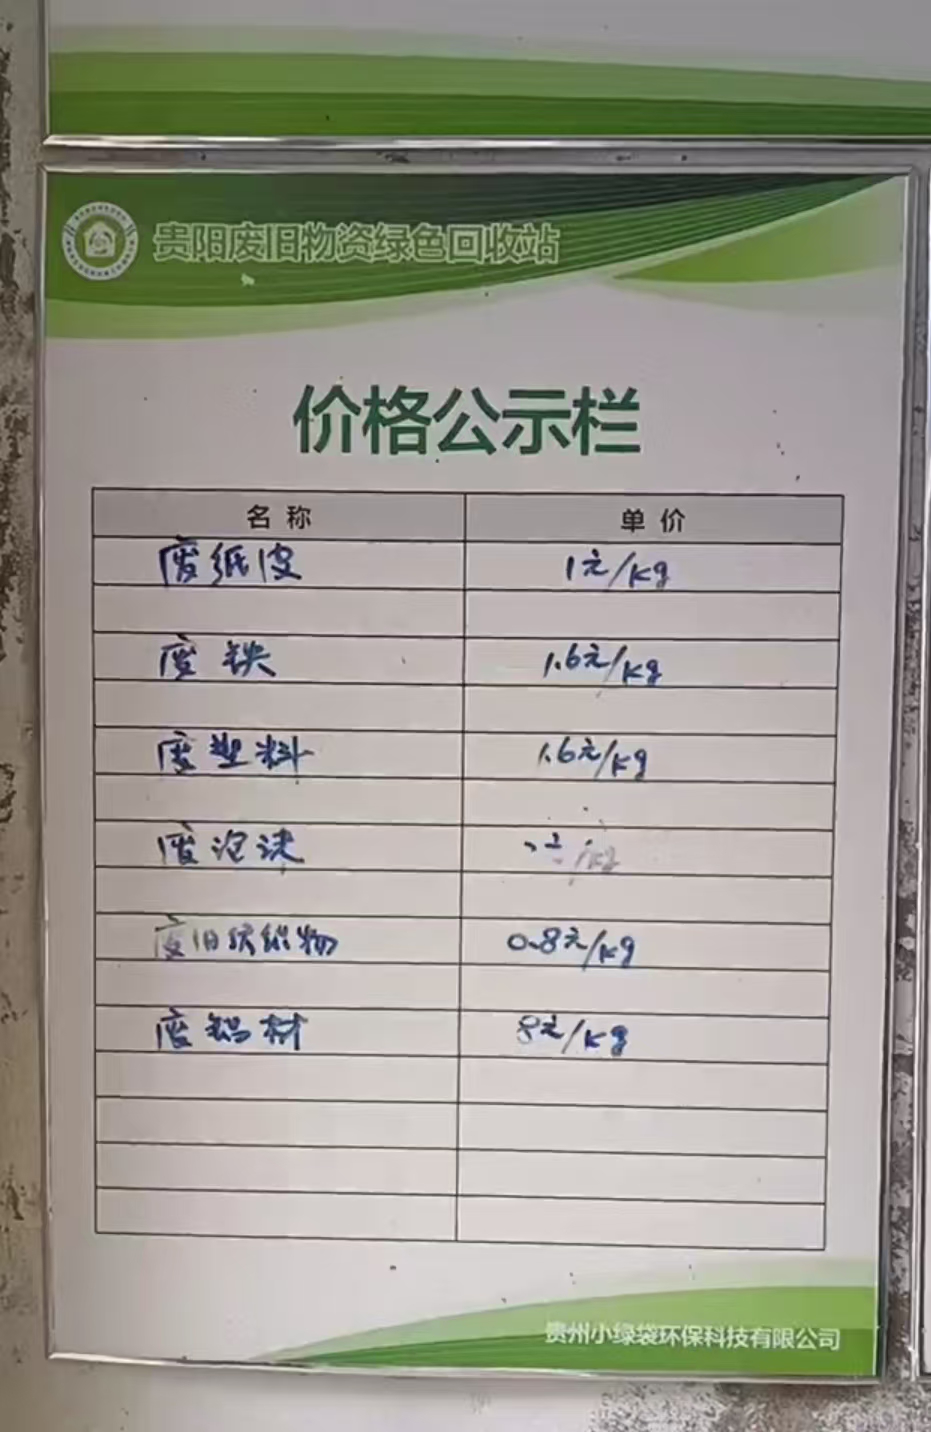 贵阳废旧物资绿色回收站
价格公示栏
名称 单价
废纸皮 1元/kg
废铁 1.6元/kg
废塑料 1.6元/kg
废泡沫 /kg
废旧织物 0.8元/kg
废铝材 8元/kg
贵州小绿袋环保科技有限公司